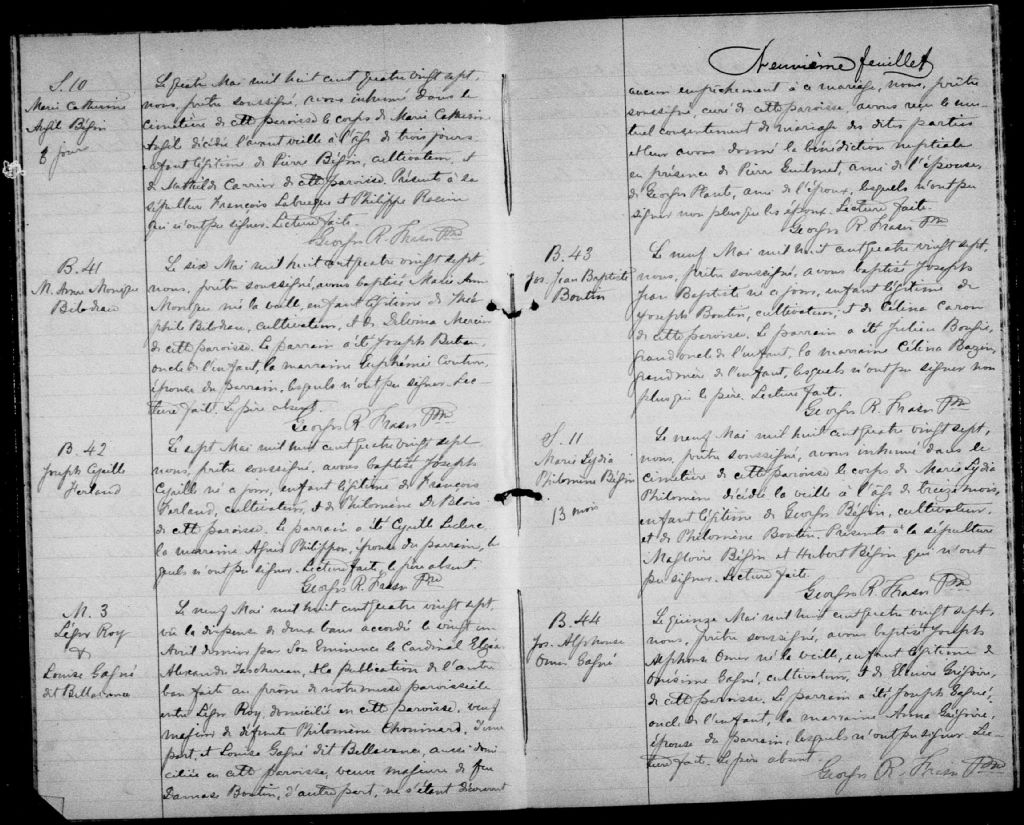 S. 10
Marie Catherine
Azélé Bégin
jours
Le quatre Mai mil huit cent quatre vingt sept,
nous, prêtre soussigné, avons inhumé dans le
cimetière de cette paroisse le corps de Marie Catherine
décédée l'avant veille à l'âge de trois jours
enfant légitime de Pierre Bégin, cultivateur, et
de Mathilde Carrier de cette paroisse. Présents à la
sépulture François Labrecque et Philippe Racine
qui n'ont pu signer. Lecture faite.
Georges R. Fraser Ptre
B. 41
M. Anne Monique
Bilodeau
Le six Mai mil huit cent quatre vingt sept,
nous, prêtre soussigné, avons baptisé Marie Anne
Monique née la veille, enfant légitime de Théo-
phile Bilodeau, cultivateur, et de Delvina Mercier
de cette paroisse. Le parrain a été Joseph
oncle de l'enfant, la marraine Euphémie Couture,
épouse du parrain, lesquels n'ont pu signer. Lec-
ture faite. Le père absent.
Georges R. Fraser Ptre
B. 42
Joseph Cyrille
Ferland
Le sept Mai mil huit cent quatre vingt sept
nous, prêtre soussigné, avons baptisé Joseph
Cyrille né ce jour, enfant légitime de François
Ferland, cultivateur, et de Philomène De Blois
de cette paroisse. Le parrain a été Cyrille Leclerc,
la marraine Agnès Philippon, épouse du parrain, les-
quels n'ont pu signer. Lecture faite, le père absent.
Georges R. Fraser Ptre
M. 3
Léger Roy
&
Louise Gagné
dit Bellavance
Le neuf Mai mil huit cent quatre vingt sept,
vu la dispense de deux bans accordée le vingt un
Avril dernier par Son Eminence le Cardinal Elzéar
Alexandre Taschereau, et la publication de l'autre
ban faite au prône de notre messe paroissiale
entre Léger Roy, domicilié en cette paroisse, veuf
majeur de défunte Philomène Chouinard, d'une
part, et Louise Gagné dit Bellavance, aussi domi-
ciliée en cette paroisse, veuve majeure de feu
Damase Boutin, d'autre part, ne s'étant découvert
Neuvième feuillet
aucun empêchement à ce mariage, nous, prêtre
soussigné, curé de cette paroisse avons reçu le mu-
tuel consentement de mariage des dites parties
et leur avons donné la bénédiction nuptiale
en présence de Pierre Guilmet, ami de l'épouse,
de Georges Plante, ami de l'époux, lesquels n'ont pu
signer non plus que les époux. Lecture faite.
Georges R. Fraser Ptre
B. 43
Jos. Jean Baptiste
Boutin
Le neuf Mai mil huit cent quatre vingt sept,
nous, prêtre soussigné, avons baptisé Joseph
Jean Baptiste né ce jour, enfant légitime de
Joseph Boutin, cultivateur, et de Célina Caron
de cette paroisse. Le parrain a été Julien
grand oncle de l'enfant, la marraine Célina Bazin,
grand'mère de l'enfant, lesquels n'ont pu signer non
plus que le père. Lecture faite.
Georges R. Fraser Ptre
S. 11
Marie Lydia
Philomène Bégin
13 mois
Le neuf Mai mil huit cent quatre vingt sept,
nous, prêtre soussigné, avons inhumé dans le
cimetière de cette paroisse le corps de Marie Lydia
Philomène décédée la veille à l'âge de treize mois,
enfant légitime de Georges Bégin, cultivateur,
et de Philomène Boutin. Présents à la sépulture
Magloire Bégin et Hubert Bégin qui n'ont
pu signer. Lecture faite.
Georges R. Fraser Ptre
B. 44
Jos. Alphonse
Omer Gagné
Le quinze Mai mil huit cent quatre vingt sept,
nous, prêtre soussigné, avons baptisé Joseph
Alphonse Omer né la veille, enfant légitime de
Onésime Gagné, cultivateur, et de Elmire Grégoire,
de cette paroisse. Le parrain a été Joseph Gagné,
oncle de l'enfant, la marraine Anna Grégoire,
épouse du parrain, lesquels n'ont pu signer. Lec-
ture faite. Le père absent.
Georges R. Fraser Ptre